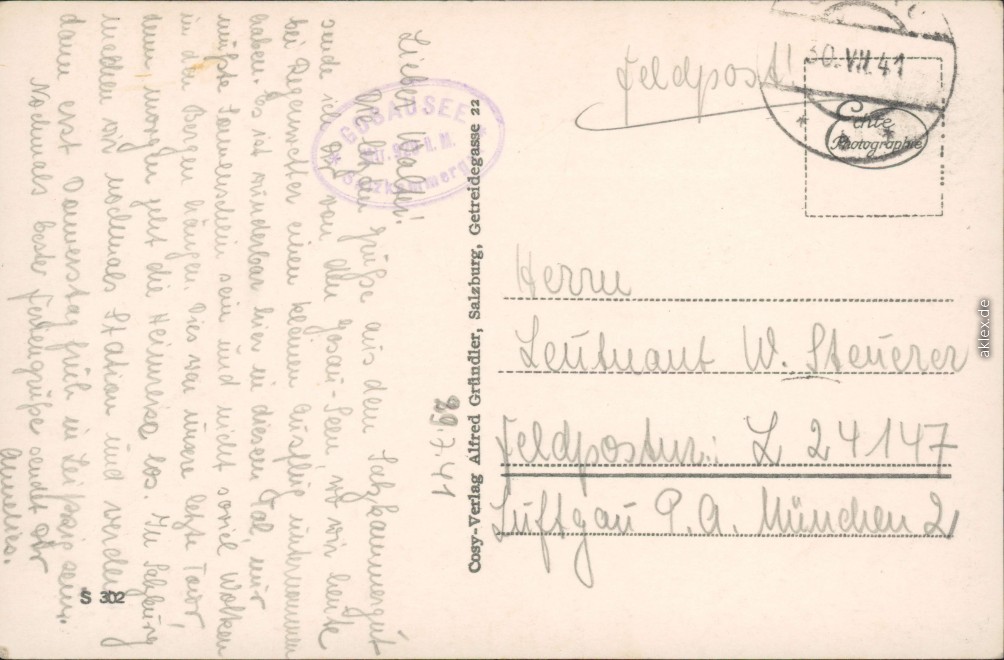 29.7.41
Lieber Walter!
Viele liebe Grüße aus dem Salzkammergut
sende ich Dir von den Gosau-Seen, wo wir heute
bei Regenwetter einen kleinen Ausflug unternommen
haben. Es ist wunderbar hier in diesem Tal, nur
müßte Sonnenschein sein und nicht soviel Wolken
in den Bergen hängen. Dies war unsere letzte Tour
denn morgen geht die Heimreise los. In Salzburg
machen wir nochmals Station und werden
dann erst Donnerstag früh in Leipzig sein.
Nochmals beste Feriengrüße sendet Dir
Annelies.
GOSAUSEE
Salzkammergut
S 302
Cosy-Verlag Alfred Gründler, Salzburg, Getreidegasse 22
Feldpost!
30.VII.41
Echte
Photographie
Herrn
Leutnant W. Steuerer
Feldpostnr.: L 24147
Luftgau P.A. München 2
aklex.de